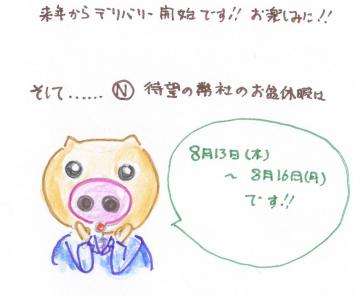 来年からデリバリー開始です!! お楽しみに!!
そして…… Ⓝ 待望の弊社のお盆休暇は
8月13日(木)
～ 8月16日(月)
です!!